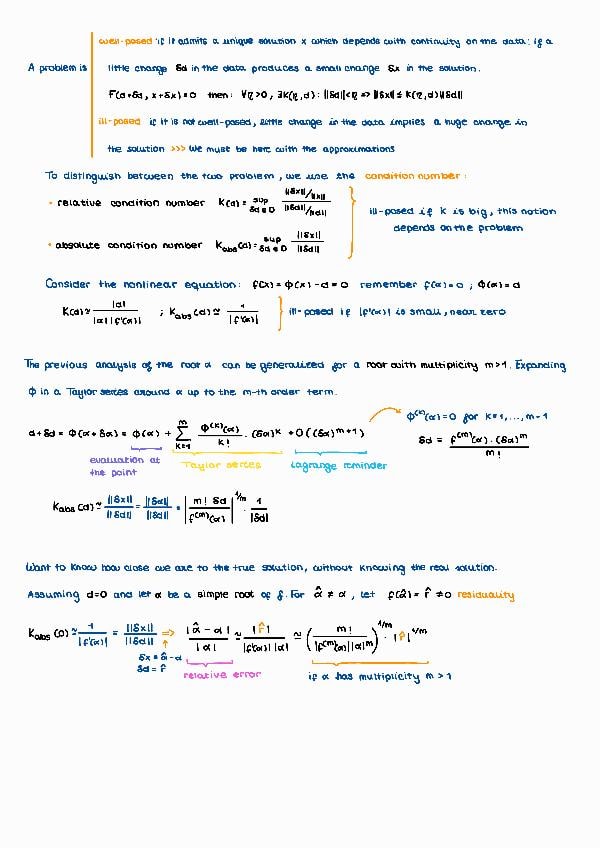 well-posed if it admits a unique solution x which depends with continuity on the data: if a
A problem is little change δd in the data produces a small change δx in the solution.
F(d+δd, x+δx)=0 then: ∀η>0, ∃K(η,d): ||δd||<η => ||δx|| ≤ K(η,d)||δd||
ill-posed if it is not well-posed, little change in the data implies a huge change in
the solution >>> we must be here with the approximations
To distinguish between the two problem, we use the condition number:
• relative condition number K(d) = sup δd∈D ||δx||/||x|| / ||δd||/||d||
ill-posed if K is big, this notion
depends on the problem
• absolute condition number Kabs(d) = sup δd∈D ||δx|| / ||δd||
Consider the nonlinear equation: f(x) = φ(x) - d = 0 remember f(α)=0 ; φ(α)=d
K(d) ≃ |d| / |α||f'(α)| ; Kabs(d) ≃ 1 / |f'(α)| ill-posed if |f'(α)| is small, near zero
The previous analysis of the root α can be generalized for a root with multiplicity m>1. Expanding
φ in a Taylor series around α up to the m-th order term.
φ^(k)(α)=0 for k=1,...,m-1
d+δd = φ(α+δα) = φ(α) + Σ k=1 m φ^(k)(α) / k! · (δα)^k + O((δα)^m+1) δd = f^(m)(α)·(δα)^m / m!
evaluation at the point Taylor series Lagrange reminder
Kabs(d) ≃ ||δx|| / ||δd|| = ||δα|| / ||δd|| = | m! δd / f^(m)(α) |^1/m · 1 / |δd|
Want to know how close we are to the true solution, without knowing the real solution.
Assuming d=0 and let α be a simple root of f. For α̂ ≠ α, let f(α̂) = r̂ ≠0 residuality
Kabs(0) ≃ 1 / |f'(α)| = ||δx|| / ||δd|| => |α̂ - α| / |α| ≃ |r̂| / |f'(α)||α| ≃ ( m! / |f^(m)(α)||α|^m )^1/m · |r̂|^1/m
δx = α̂ - α
δd = r̂
relative error if α has multiplicity m > 1